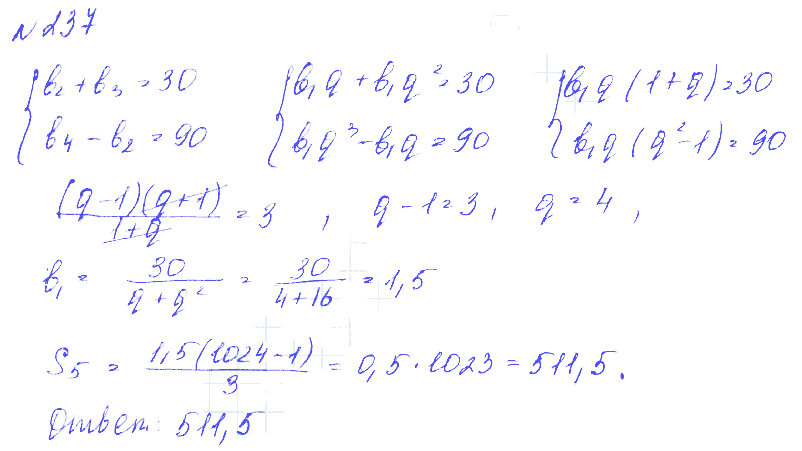 №237
{b₂ + b₃ = 30 {b₁q + b₁q² = 30 {b₁q (1+q) = 30
{b₄ - b₂ = 90 {b₁q³ - b₁q = 90 {b₁q (q² - 1) = 90
(q-1)(q+1)/(1+q) = 3 , q - 1 = 3, q = 4,
b₁ = 30/(q+q²) = 30/(4+16) = 1,5
S₅ = 1,5(1024-1)/3 = 0,5·1023 = 511,5.
Ответ: 511,5